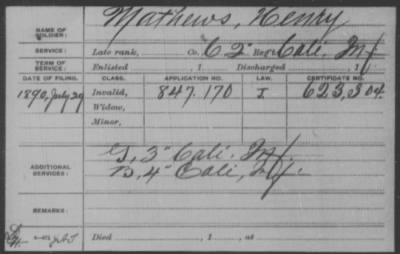 NAME OF SOLDIER: Mathews, Henry
SERVICE: Late rank, Co. C 2" Reg't Cali. Inf.
TERM OF SERVICE: Enlisted , 1 Discharged , 1
DATE OF FILING. CLASS. APPLICATION NO. LAW. CERTIFICATE NO.
1890, July 29 Invalid, 847.170 I 623,304.
Widow,
Minor,
ADDITIONAL SERVICES: G, 3" Cali. Inf.
B, 4" Cali, Inf.
REMARKS:
Died , 1 , at